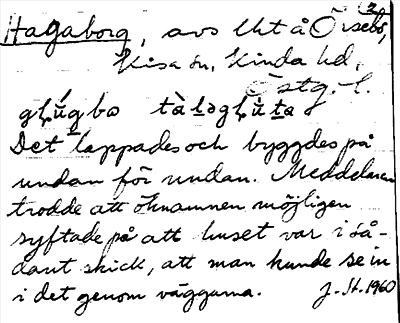 Hagaborg, avs Ekt å Örsebo,
Kisa sn, Kinda hd,
Östg. l.
Det lappades och byggdes på
undan för undan. Meddelaren
trodde att öknamnen möjligen
syftade på att huset var i så-
dant skick, att man kunde se in
i det genom väggarna. J. St. 1960